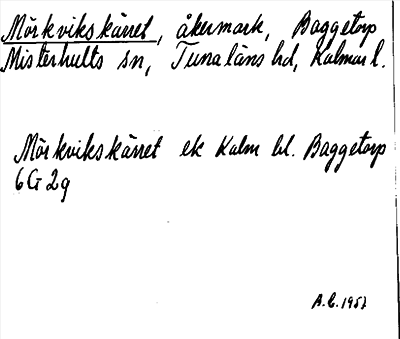 Mörkvikskärret, åkermark, Baggetorp
Misterhults sn, Tunaläns hd, Kalmar l.
Mörkvikskärret ek Kalm bl. Baggetorp
6G2g
A.C. 1957